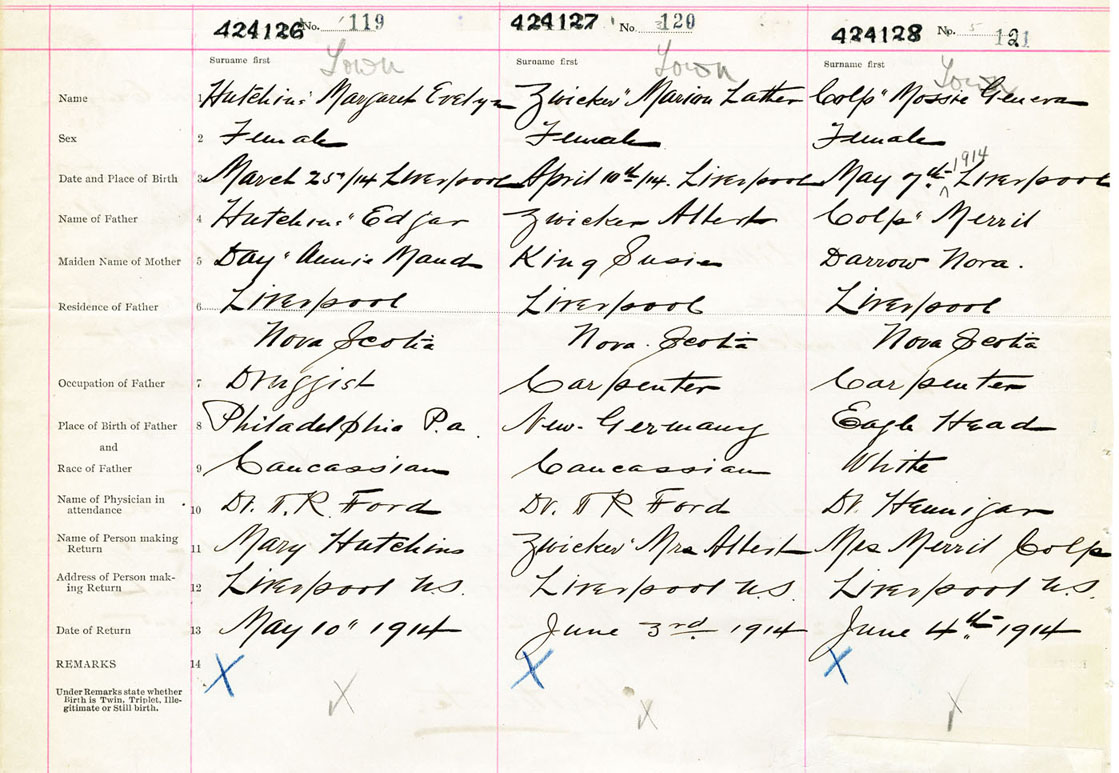 424126 No. 119 424127 No. 120 424128 No. 5 121
Surname first Town Surname first Town Surname first Town
Name 1 Hutchins" Margaret Evelyn Zwicker" Marion Lather Colp" Mossie Geneva
Sex 2 Female Female Female
Date and Place of Birth 3 March 25"/14 Liverpool April 10th/14. Liverpool May 7th 1914 Liverpool
Name of Father 4 Hutchins" Edgar Zwicker Albert Colp" Merril
Maiden Name of Mother 5 Day" Annie Maud King Susie Darrow Nora.
Residence of Father 6 Liverpool Liverpool Liverpool
Nova Scotia Nova. Scotia Nova Scotia
Occupation of Father 7 Druggist Carpenter Carpenter
Place of Birth of Father 8 Philadelphia P.a. New-Germany Eagle Head
and
Race of Father 9 Caucassian Caucassian White
Name of Physician in
attendance 10 Dr. T.R. Ford Dr. T R Ford Dr. Hennigar
Name of Person making
Return 11 Mary Hutchins Zwicker" Mrs Albert Mrs Merril Colp
Address of Person mak-
ing Return 12 Liverpool N.S. Liverpool N.S. Liverpool N.S.
Date of Return 13 May 10" 1914 June 3rd. 1914 June 4th 1914
REMARKS 14 X X X
Under Remarks state whether
Birth is Twin, Triplet, Ille-
gitimate or Still birth. X X X